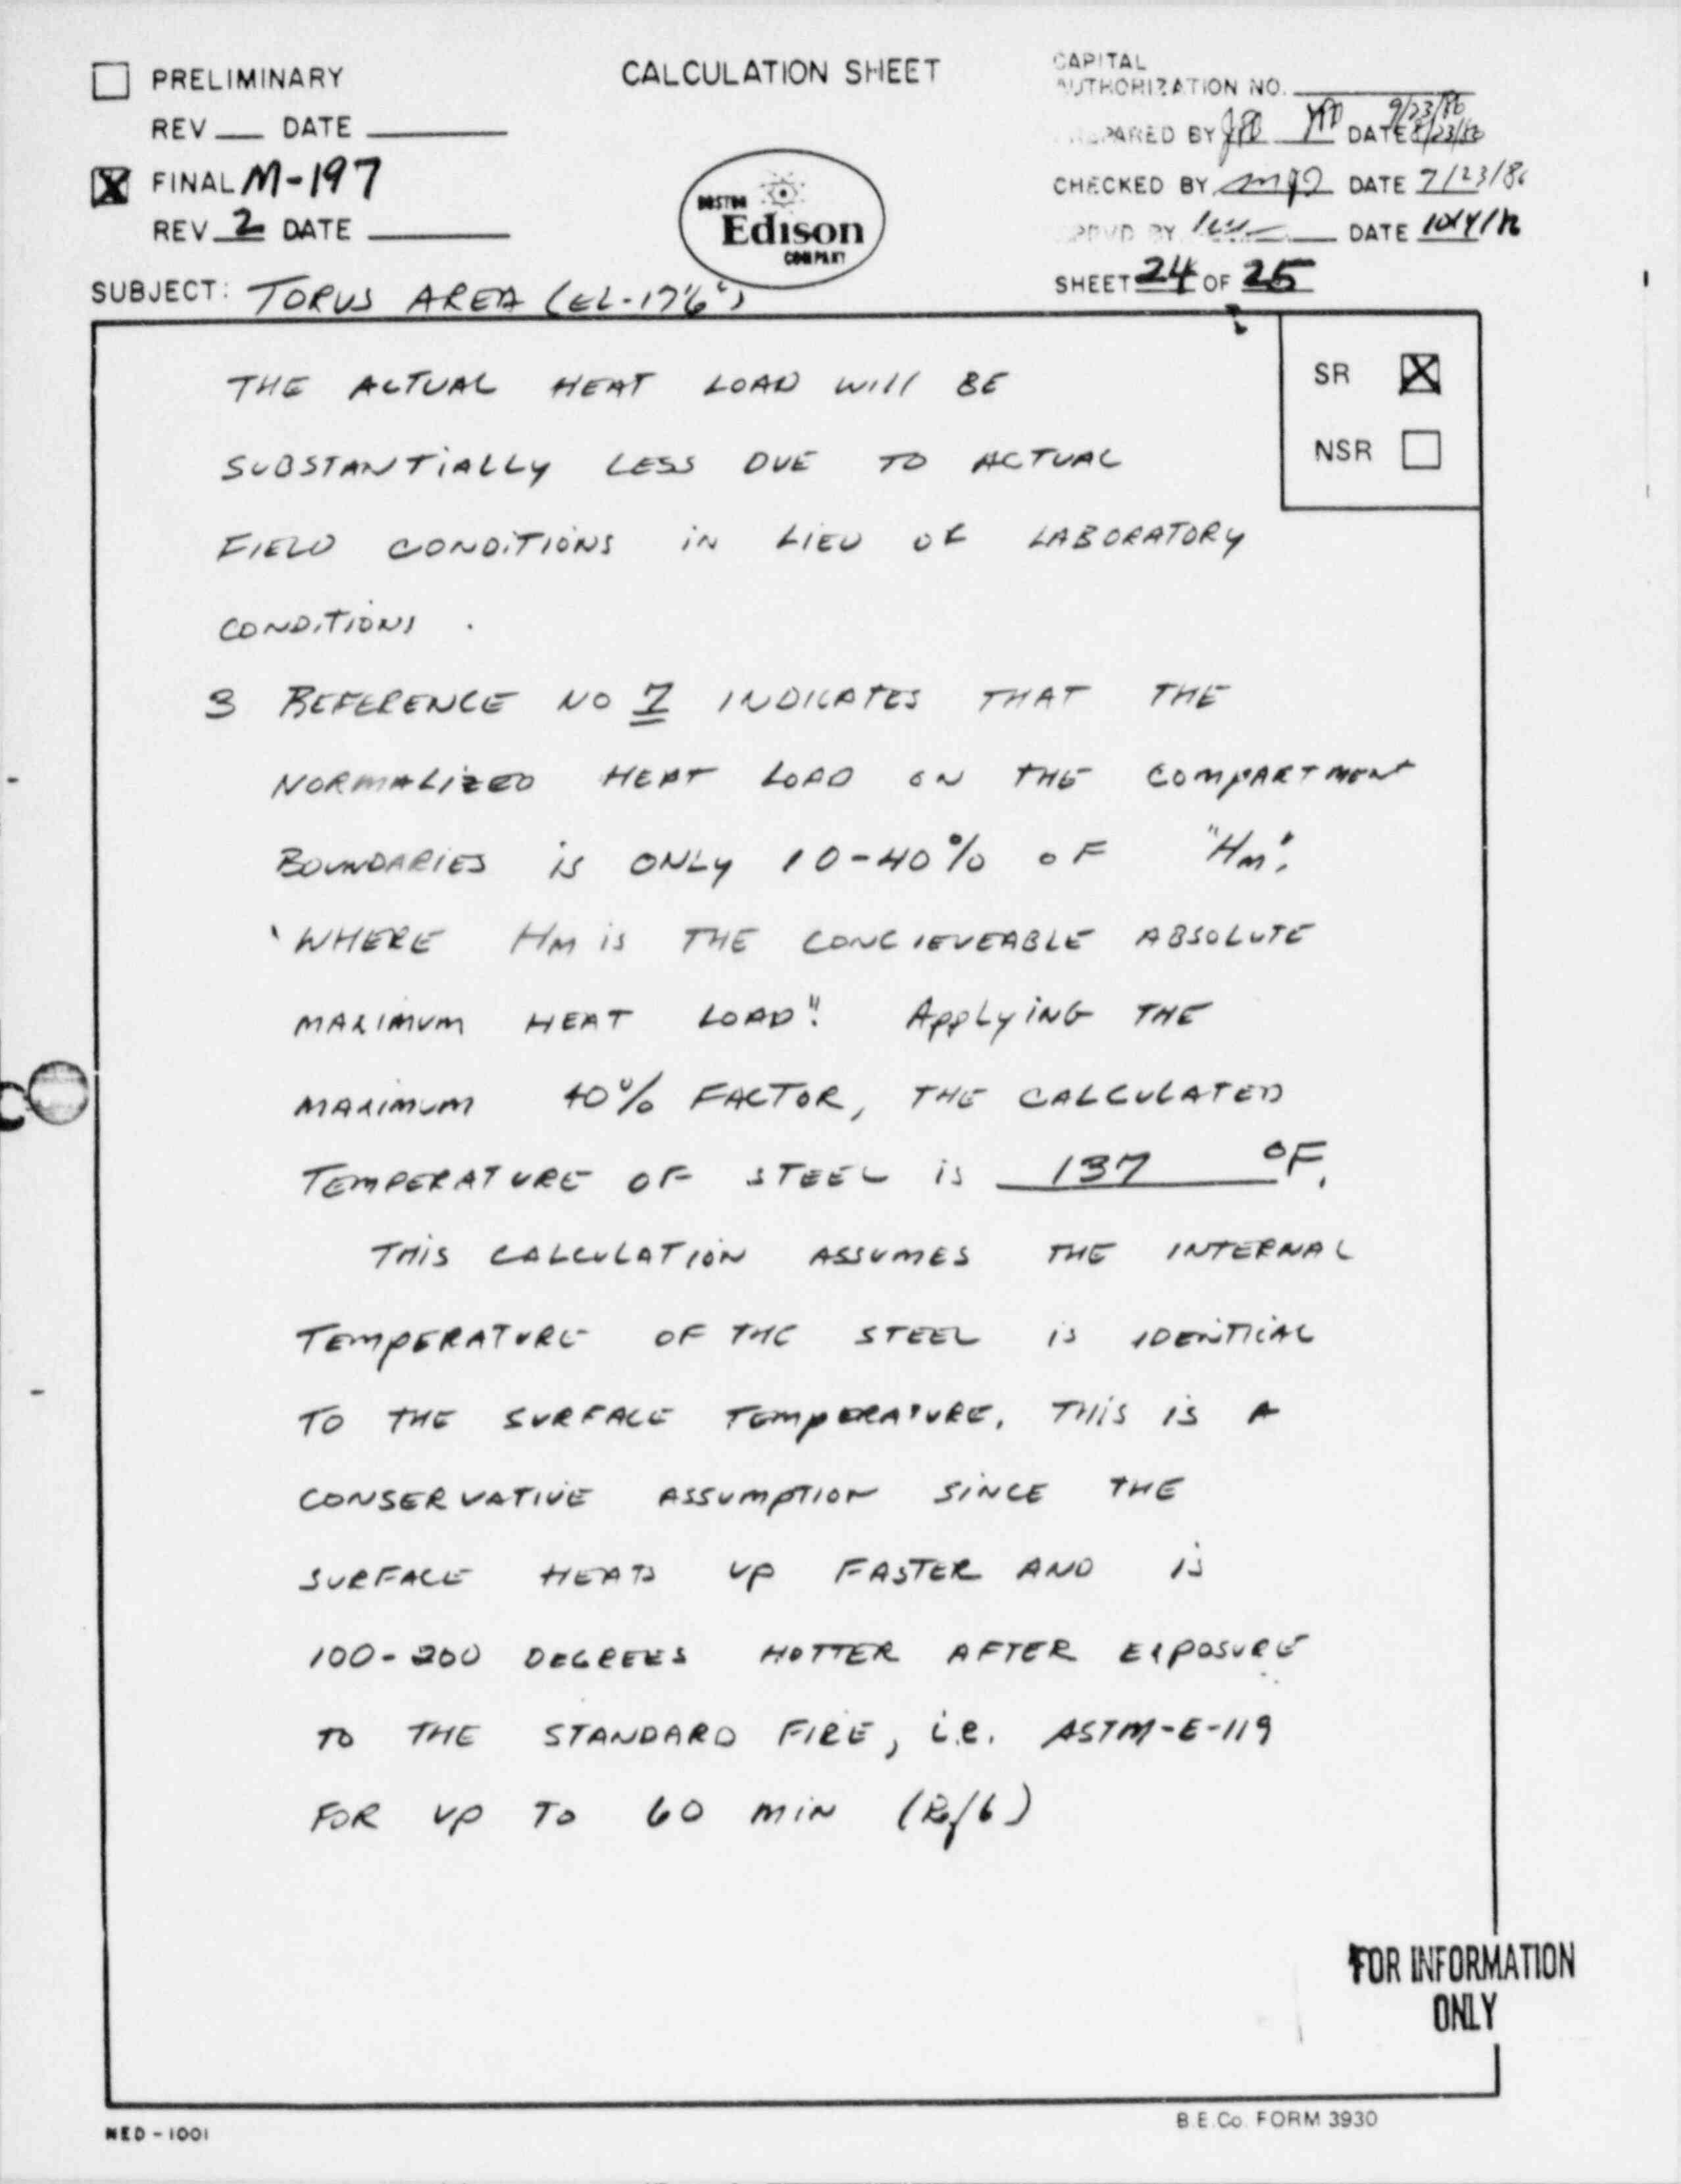 PRELIMINARY
REV DATE
FINAL M-197
REV 2 DATE
CALCULATION SHEET
BOSTON
Edison
COMPANY
CAPITAL
AUTHORIZATION NO.
PREPARED BY DATE 9/23/86
CHECKED BY DATE 9/23/86
DATE
SHEET 24 OF 25
SUBJECT: TORUS AREA (EL-17'6")
SR
NSR
THE ACTUAL HEAT LOAD WILL BE
SUBSTANTIALLY LESS DUE TO ACTUAL
FIELD CONDITIONS IN LIEU OF LABORATORY
CONDITIONS .
3 REFERENCE NO 7 INDICATES THAT THE
NORMALIZED HEAT LOAD ON THE COMPARTMENT
BOUNDARIES IS ONLY 10-40% OF "Hm".
"WHERE HM IS THE CONCIEVEABLE ABSOLUTE
MAXIMUM HEAT LOAD". APPLYING THE
MAXIMUM 40% FACTOR, THE CALCULATED
TEMPERATURE OF STEEL IS 137 °F.
THIS CALCULATION ASSUMES THE INTERNAL
TEMPERATURE OF THE STEEL IS IDENTICAL
TO THE SURFACE TEMPERATURE. THIS IS A
CONSERVATIVE ASSUMPTION SINCE THE
SURFACE HEATS UP FASTER AND IS
100-200 DEGREES HOTTER AFTER EXPOSURE
TO THE STANDARD FIRE, i.e. ASTM-E-119
FOR UP TO 60 MIN (Ref 6)
FOR INFORMATION
ONLY
NED-1001
B.E.Co. FORM 3930